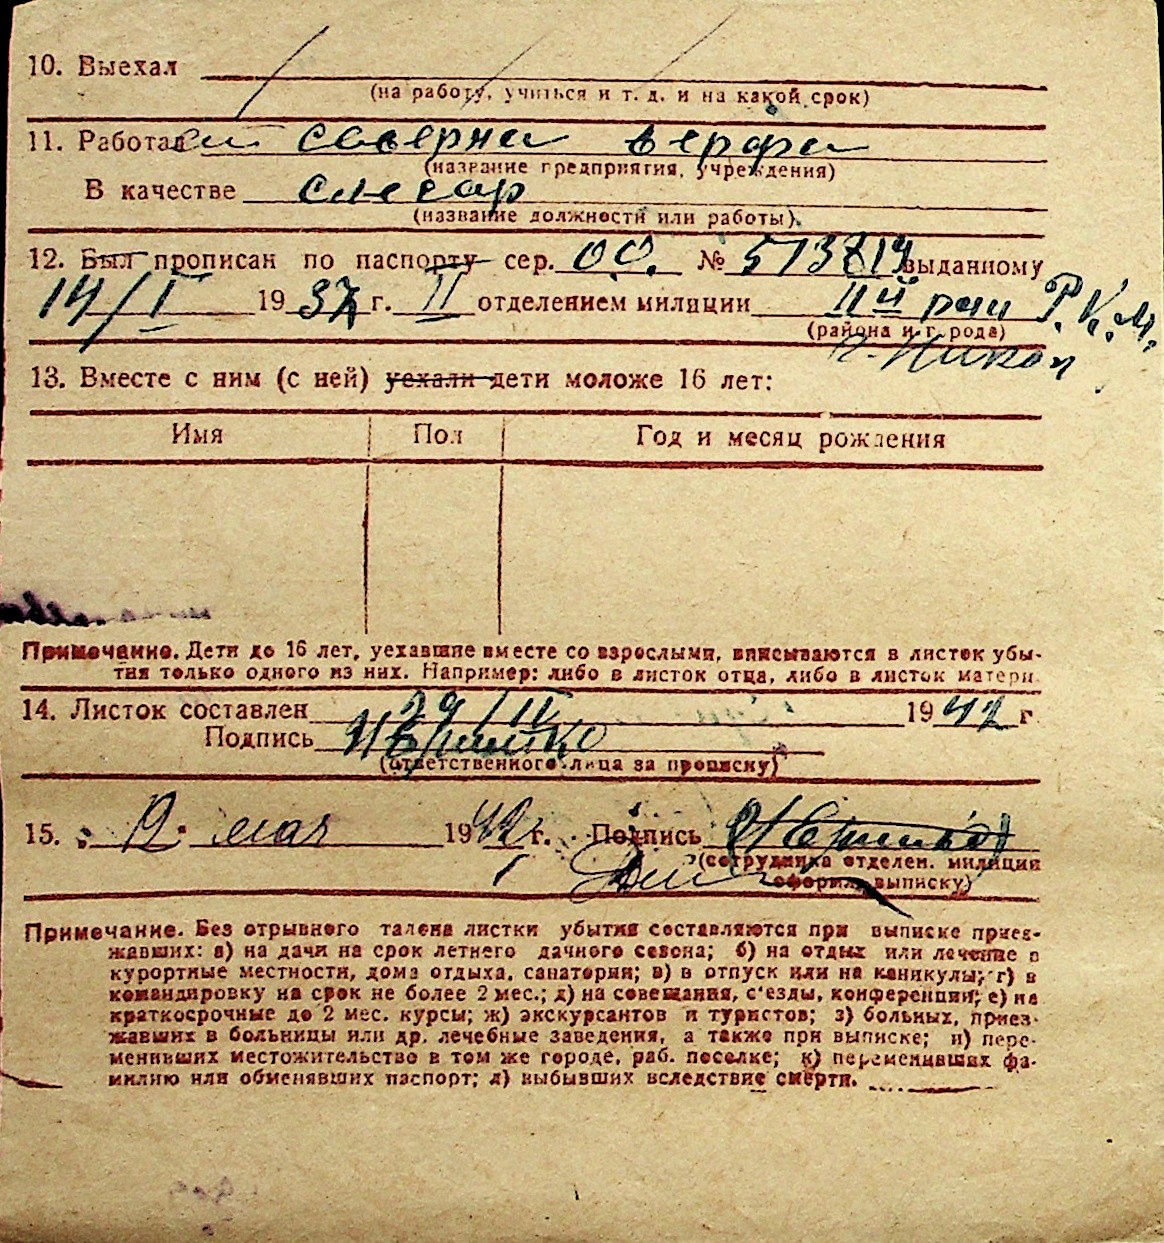 10. Выехал
(на работу, учиться и т. д. и на какой срок)
11. Работал северна верфи
(название предприятия, учреждения)
В качестве слесар
(название должности или работы).
12. Был прописан по паспорту сер. № выданному
14/I 1937 г. II отделением милиции IIй Р.К.М.
(района и города)
13. Вместе с ним (с ней) уехали дети моложе 16 лет:
Имя Пол Год и месяц рождения
Примечание. Дети до 16 лет, уехавшие вместе со взрослыми, вписываются в листок убы-
тия только одного из них. Например: либо в листок отца, либо в листок матери
14. Листок составлен 29/IV 1942 г.
Подпись
(ответственного лица за прописку)
15. 12 мая 1942 г. Подпись
(сотрудника отделен. милиции
оформл. выписку)
Примечание. Без отрывного талона листки убытия составляются при выписке приез-
жавших: а) на дачи на срок летнего дачного сезона; б) на отдых или лечение в
курортные местности, дома отдыха, санатории; в) в отпуск или на каникулы; г) в
командировку на срок не более 2 мес.; д) на совещания, с'езды, конференции; е) на
краткосрочные до 2 мес. курсы; ж) экскурсантов и туристов; з) больных, приез-
жавших в больницы или др. лечебные заведения, а также при выписке; и) пере-
менивших местожительство в том же городе, раб. поселке; к) переменивших фа-
милию или обменявших паспорт; л) выбывших вследствие смерти.